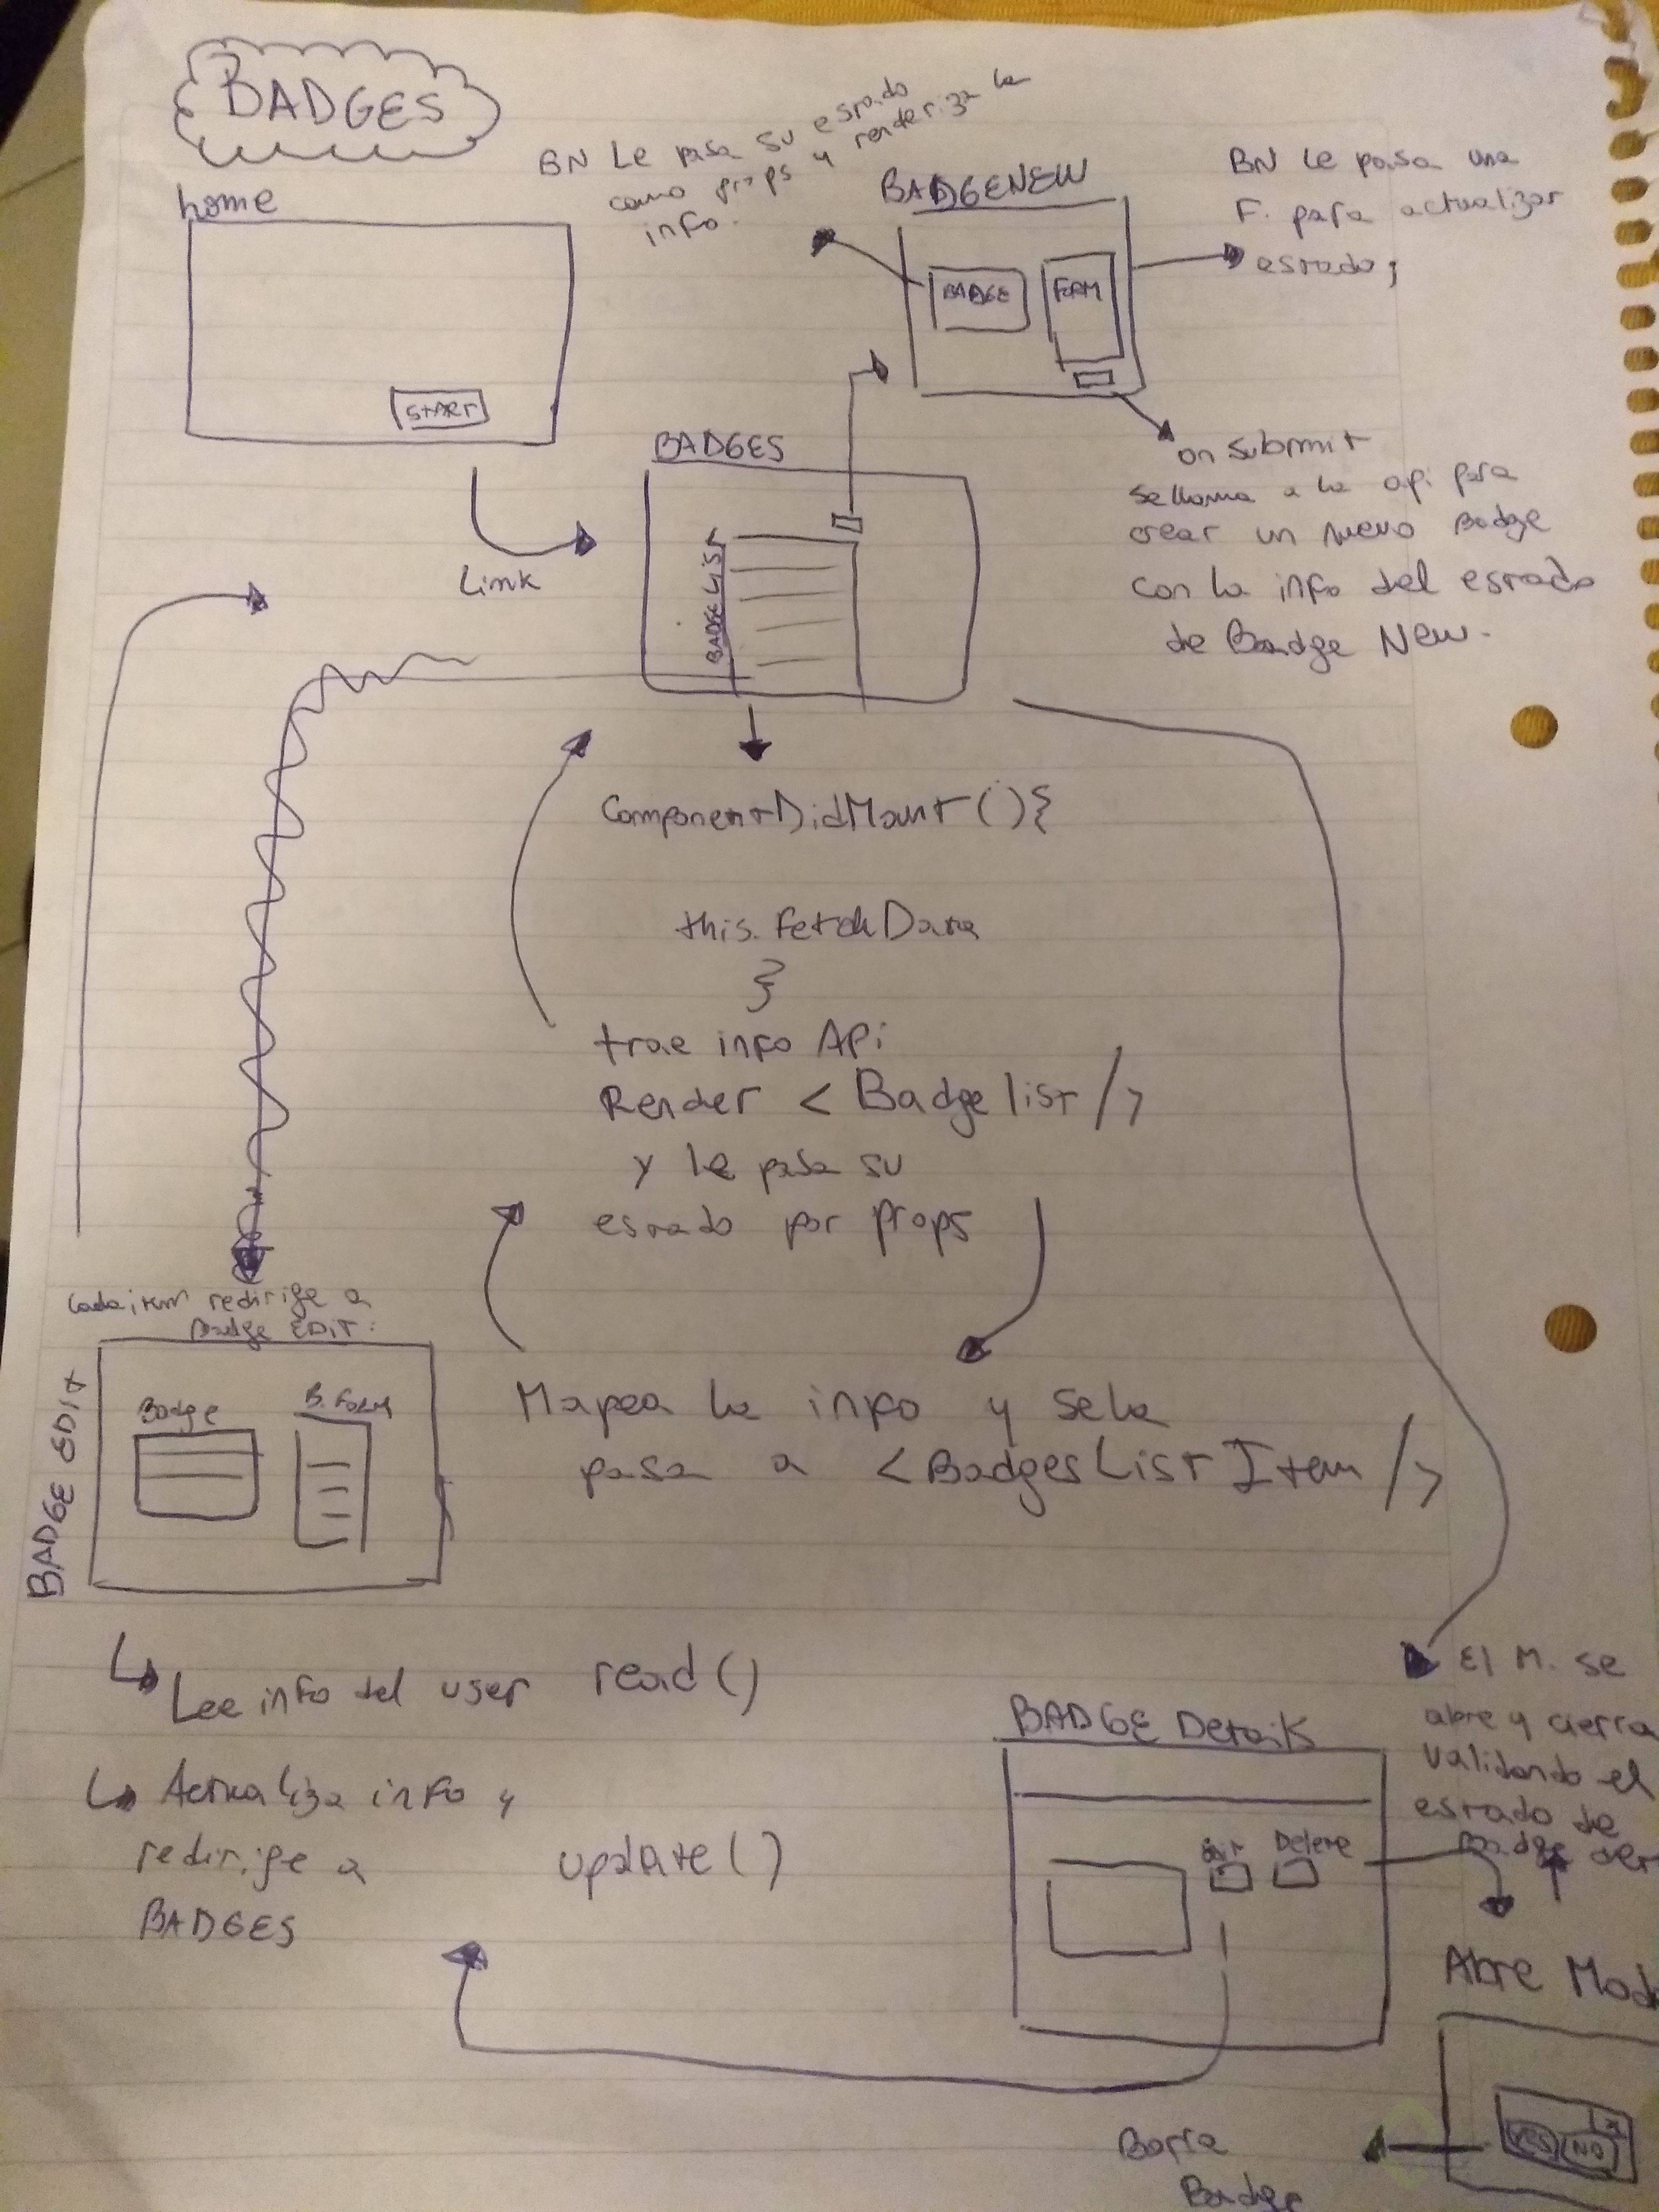 BADGES
home
START
Link
BN Le pasa su estado
como props y renderiza la
info.
BADGENEW
BADGE
FORM
BN Le pasa una
F. para actualizar
estado;
on submit
se llama a la api para
crear un nuevo Badge
con la info del estado
de Badge New.
BADGES
BADGE LIST
ComponentDidMount(){
this.fetchData
}
trae info APi
Render <Badgelist/>
y le pasa su
estado por props
Mapea la info y se la
pasa a <BadgesListItem/>
Cada item redirige a
Badge EDIT.
BADGE EDIT
Badge
B. FORM
Lee info del user read()
Actualiza info y
redirige a update()
BADGES
BADGE Details
Edit Delete
El M. se
abre y cierra
validando el
estado de
Badge det
Abre Mod
X
YES NO
Borra
Badge